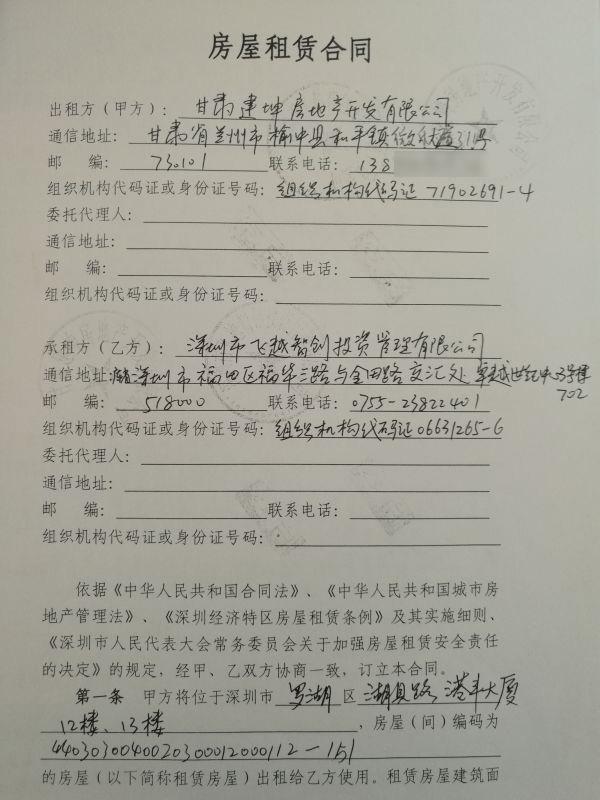 房屋租赁合同
出租方（甲方）：甘肃建坤房地产开发有限公司
通信地址：甘肃省兰州市榆中县和平镇徽 31号
邮 编：730101 联系电话：138
组织机构代码证或身份证号码：组织机构代码证 71902691-4
委托代理人：
通信地址：
邮 编： 联系电话：
组织机构代码证或身份证号码：
承租方（乙方）：深圳市飞越智创投资管理有限公司
通信地址：深圳市福田区福华三路与金田路交汇处卓越世纪中心3号楼
702
邮 编：518000 联系电话：0755-23822401
组织机构代码证或身份证号码：组织机构代码证06631265-6
委托代理人：
通信地址：
邮 编： 联系电话：
组织机构代码证或身份证号码：
依据《中华人民共和国合同法》、《中华人民共和国城市房
地产管理法》、《深圳经济特区房屋租赁条例》及其实施细则、
《深圳市人民代表大会常务委员会关于加强房屋租赁安全责任
的决定》的规定，经甲、乙双方协商一致，订立本合同。
第一条 甲方将位于深圳市罗湖区湖贝路港丰大厦
12楼、13楼，房屋（间）编码为
4403030040020300012000112-151
的房屋（以下简称租赁房屋）出租给乙方使用。租赁房屋建筑面